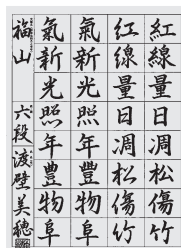 紅線量日凋松傷竹
紅線量日凋松傷竹
氣新光照年豐物阜
氣新光照年豐物阜
福山 六段 渡壁美穂